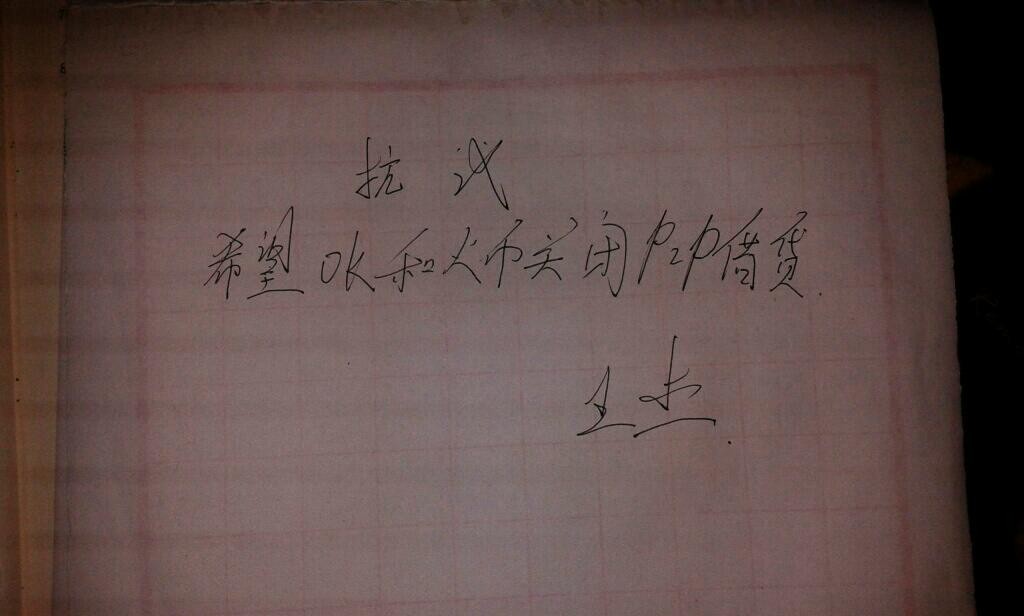 抗议
希望OK和火币关闭P2P借贷.
王杰.